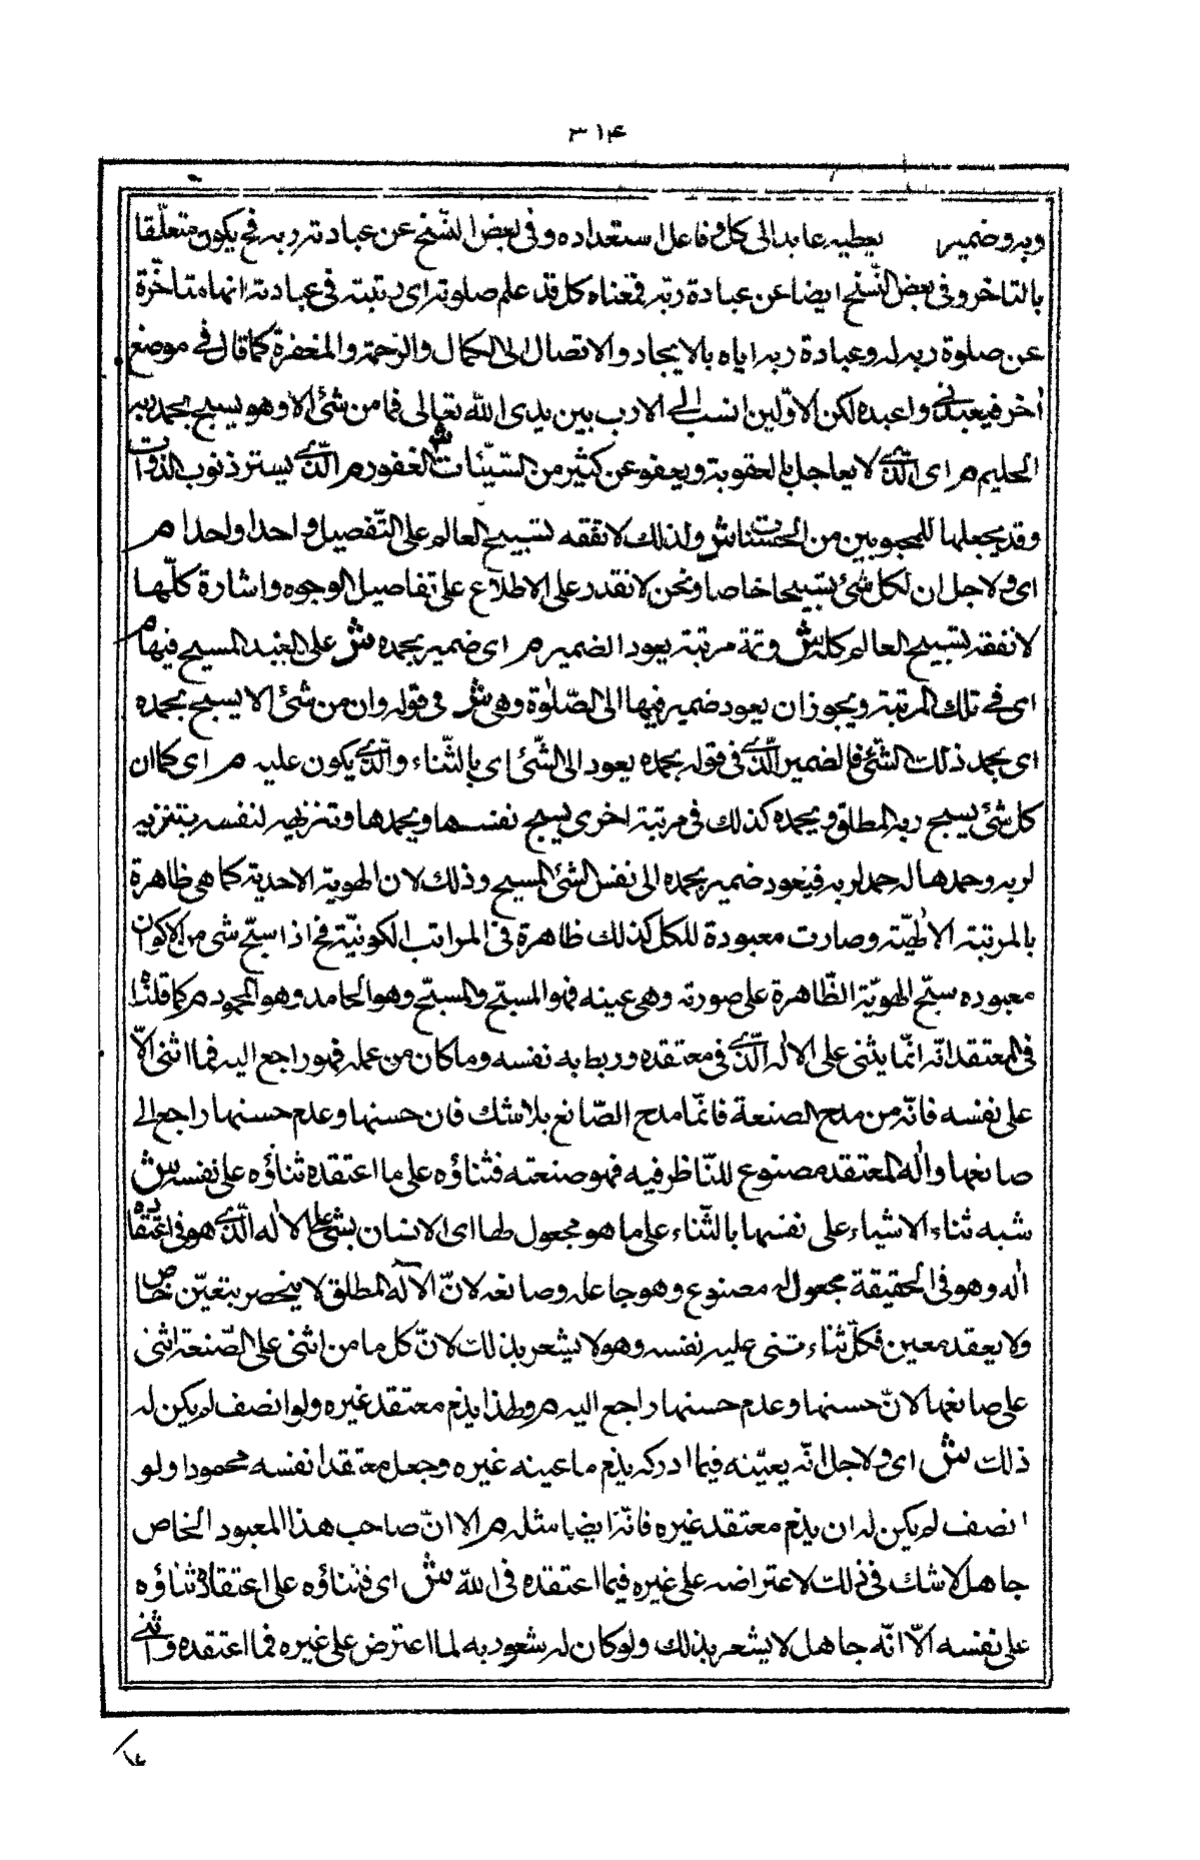 ٣١۴
وبه وضمير يعطيه عايد الى كل وفاعل استعداده وفى بعض النسّخ عن عبادته ربه فح يكون متعلّقا
بالتاخر وفى بعض النّسخ ايضا عن عبادة ربّه فمعناه كل قد علم صلوته اى رتبته فى عبادته انها متاخّرة
عن صلوة ربه له وعبادة ربه اياه بالايجاد والاتصال الى الكمال والرّحمة والمغفرة كما قال فى موضع
أخر فيعبدنى واعبده لكن الاوّلين انسب الى الادب بين يدى اللّه تعالى فما من شئ الا وهو يسبح بحمد ربه
الحليم م اى الّذى لا يعاجل بالعقوبة ويعفو عن كثير من السّيّئات ش الغفور م الّذى يستر ذنوب الذوات
وقد يجعلها للمحبوبين من الحسنات ش ولذلك لا نفقه تسبيح العالم على التّفصيل واحدا واحدا م
اى ولاجل ان لكل شئ تسبيحا خاصا ونحن لا نقدر على الاطلاع على تفاصيل الوجوه واشارة كلّها
لا نفقه تسبيح العالم كله ش وثمة مرتبة يعود الضمير م اى ضمير بحمده ش على العبد المسبح فيها م
اى فى تلك المرتبة ويجوز ان يعود ضمير فيها الى الصّلوة وهى ش فى قوله وان من شئ الا يسبح بحمده
اى بحمد ذلك الشّئ فالضمير الّذى فى قوله بحمده يعود الى الشّئ اى بالثّناء والّذى يكون عليه م اى كما ان
كل شئ يسبح ربه المطلق ويحمده كذلك فى مرتبة اخرى يسبح نفسها ويحمدها وتنزيهه لنفسه بتنزيه
لربه وحمدها له حمد لربه فيعود ضمير بحمده الى نفس الشئ المسبح وذلك لان الهوية الاحدية كما هى ظاهرة
بالمرتبة الالٰهيّة وصارت معبودة للكل كذلك ظاهرة فى المراتب الكونيّة فح اذا سبّح شى من الاكوان
معبوده سبّح الهويّة الظّاهرة على صورته وهى عينه فهو المسبّح والمسبّح وهو الحامد وهو المحمود م كما قلنا
فى المعتقد انّه انّما يثنى على الالٰه الّذى فى معتقده وربط به نفسه وما كان من عمله فهو راجع اليه فما اثنى الّا
على نفسه فانّه من مدح الصنعة فانّما مدح الصّانع بلا شك فان حسنها وعدم حسنها راجع الى
صانعها واله المعتقد مصنوع للنّاظر فيه فهو صنعته فثناؤه على ما اعتقده ثناؤه على نفسه ش
شبه ثناء الاشياء على نفسها بالثّناء على ما هو مجعول لها اى الانسان يثنى على الالٰه الّذى هو فى اعتقاده
اله وهو فى الحقيقة مجعول له مصنوع وهو جاعله وصانعه لانّ الآله المطلق لا ينحصر بتعيّن خاص
ولا يعقد معين فكلّ ثناء تنى عليه نفسه وهو لا يشعر بذلك لانّ كل ما من اثنى على الصّنعة اثنى
على صانعها لانّ حسنها وعدم حسنها راجع اليه م ولهذا يذم معتقد غيره ولو انصف لم يكن له
ذلك ش اى ولاجل انّه يعيّنه فيما ادركه يذم ما عينه غيره وجعل معتقد انفسه محمودا ولو
انصف لم يكن له ان يذم معتقد غيره فانّه ايضا مثله م الا انّ صاحب هذا المعبود الخاص
جاهل لا شك فى ذلك لاعتراضه على غيره فيما اعتقده فى اللّه ش اى فثناؤه على اعتقاده ثناؤه
على نفسه الّا انّه جاهل لا يشعر بذلك ولو كان له شعور به لما اعترض على غيره فما اعتقده واثنى